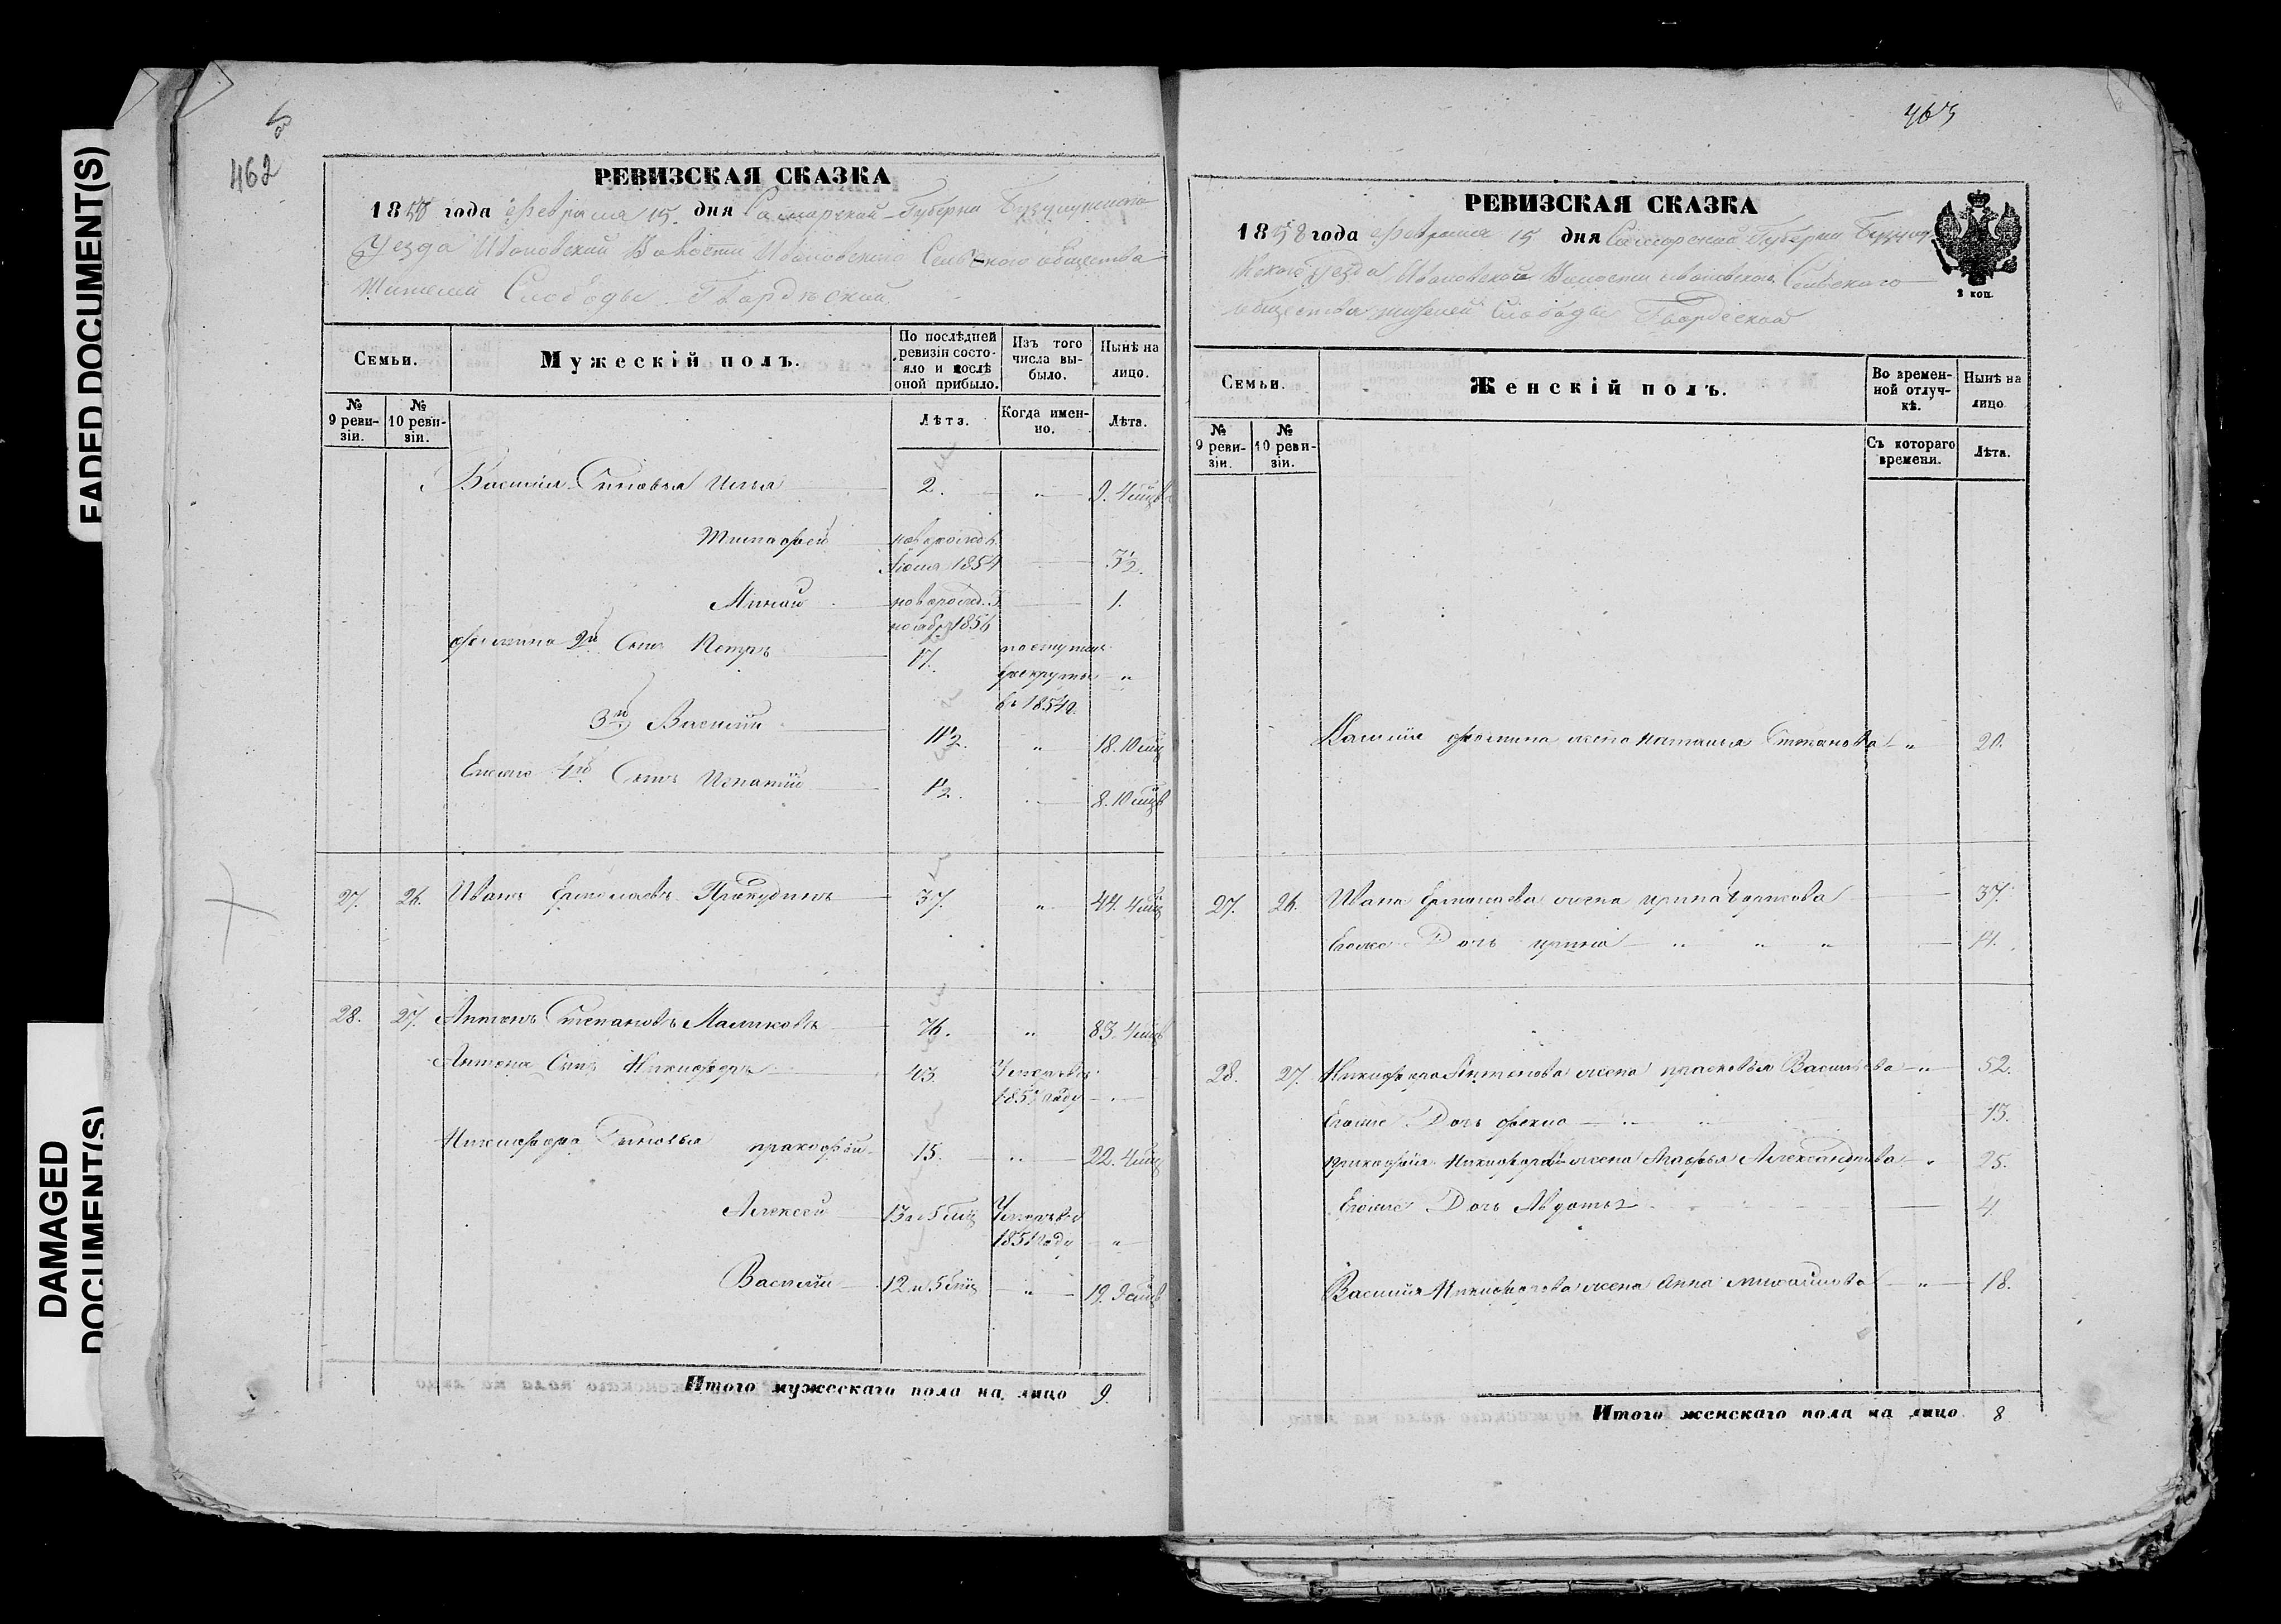 FADED DOCUMENT(S)
DAMAGED
DOCUMENT(S)
462
РЕВИЗСКАЯ СКАЗКА
1858 года Февраля 15 дня Самарской Губернии Бузулукского
Уезда Ивановской Волости Ивановского Сельского общества
Жителей Слободы
Семьи.
Мужескій полъ.
По послѣдней ревизіи состояло и послѣ оной прибыло.
Изъ того числа выбыло.
Нынѣ на лицо.
№ 9 ревизіи.
№ 10 ревизіи.
Лѣта.
Когда именно.
Лѣта.
Василія Сыновья Илья 2. " 9. 4 мцв
Тимофей новорожд. в
Июня 1854 3½.
Минай новорожд. 1.
ноябр 1856
2й Сынъ Петръ 17. поступил
рекруты "
въ 1854
3й Василій 11½. " 18. 10 мц
4й Сынъ Игнатій 1½. 8. 10 мцв
27. 26. Иванъ Ермолаевъ Пракудинъ 37. " 44. 4 мц
28. 27. Антонъ Степановъ Маликовъ 76. " 83. 4 мцв
Антона Сынъ Никифоръ 43. Умеръ въ
году
Никифора Сыновья прокофій 15. " 22. 4 мц
Алексей 13 и 5 мц Умеръ въ
1851 году "
Василій 12 и 5 мц " 19. 9 мцв
Итого мужескаго пола на лицо 9.
463
РЕВИЗСКАЯ СКАЗКА
1858 года Февраля 15 дня Самарской Губернии Бузулу
кского Уезда Ивановской Волости Ивановского Сельского
общества жителей Слободы
2 коп.
Семьи.
Женскій полъ.
Во временной отлучкѣ.
Нынѣ на лицо
№ 9 ревизіи.
№ 10 ревизіи.
Съ котораго времени.
Лѣта.
Василія Фомина жена наталья Степанова " 20.
27. 26. Ивана Ермолаева жена ирина 37.
Дочь " " " 14.
28. 27. Никифора Антонова жена прасковья Васильева " 52.
Дочь 13.
прокофія Никифорова жена Агафья Александрова " 25.
Дочь Авдотья 4
Василія Никифорова жена Анна михайлова " 18.
Итого женскаго пола на лицо 8